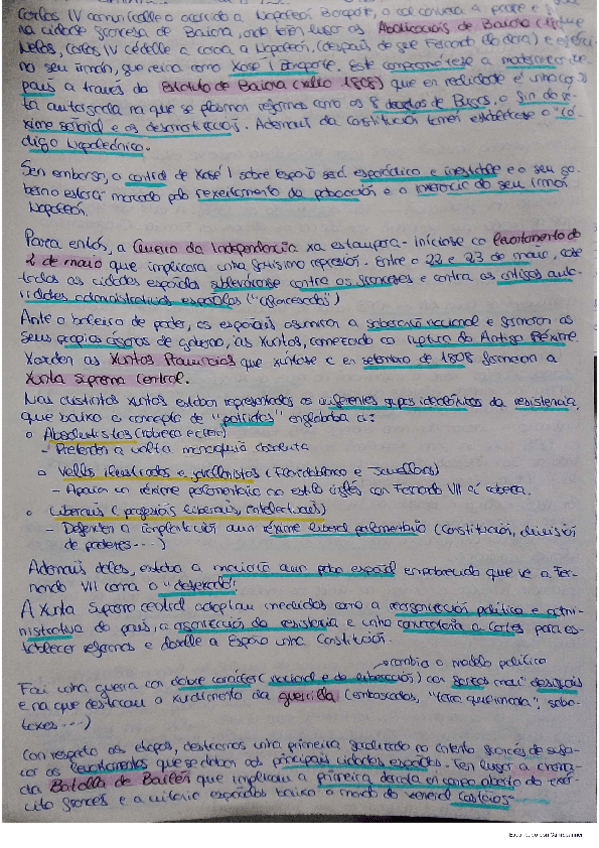 Carlos IV a Napoleón Bonaparte, o cal a
na cidade francesa de Baiona, onde teñen lugar as Abdicacións de Baiona
Carlos IV cédelle a coroa a Napoleón, (despois de que Fernando lla dera) e
no seu irmán, que reina como Xosé I Bonaparte. Este comprométese a
país a través do Estatuto de Baiona (xullo 1808) que en realidade é unha
ta autorizada na que se plasman reformas como os decretos de Burgos, o fin do ré-
xime señorial e as desamortizacións. Ademais da Constitución tamén establécese o "Có-
digo Napoleónico.
Sen embargo, o control de Xosé I sobre España será esporádico e inestable e o seu go-
berno estará marcado polo rexeitamento da poboación e a inxerencia do seu irmán
Napoleón.
Para entón, a Guerra da Independencia xa estaupara - iníciase co levantamento do
2 de maio que implicara unha fortísima represión. Entre o 22 e 23 de maio, case
todas as cidades españolas subleváronse contra os franceses e contra as antigas auto-
ridades administrativas españolas ("afrancesados")
Ante o baleiro de poder, os españois asumiron a soberanía nacional e formaron os
seus propios órganos de goberno, as Xuntas, comezando coa ruptura do Antigo Réxime.
Xorden as Xuntas Provinciais que xúntase e en setembro de 1808 forman a
Xunta Suprema Central.
Nas distintas xuntas estaban representados os diferentes grupos ideolóxicos da resistencia,
que baixo o concepto de "patriotas" englobaba a:
○ Absolutistas (nobreza e clero)
- Pretenden a volta monarquía absoluta
○ Vellos ilustrados e xovellanistas (Floridablanca e Jovellanos)
- Apoian un réxime parlamentario ao estilo inglés con Fernando VII á cabeza.
○ Liberais (profesións liberais, intelectuais)
- Defenden a implantación dun réxime liberal parlamentario (Constitución, división
de poderes...)
Ademais deles, estaba a maioría dun pobo español empobrecido que ve a Fer-
nando VII como o "desexado".
A Xunta Suprema central adoptou medidas como a reorganización política e admi-
nistrativa do país, a organización da resistencia e unha convocatoria a Cortes para es-
tablecer reformas e darlle a España unha Constitución.
cambia o modelo político
Foi unha guerra con dobre carácter (nacional e de liberación) con forzas moi desiguais
e na que destacou o xurdimento da guerrilla (emboscadas, "terra queimada", sabo-
taxes...)
Con respecto ás etapas, destacamos unha primeira o intento francés de sufo-
car os levantamentos que se daban nas principais cidades españolas. Ten lugar a
da Batalla de Bailén que implicou a primeira derrota en campo aberto do exér-
cito francés e a vitoria española baixo o mando do xeneral Castaños